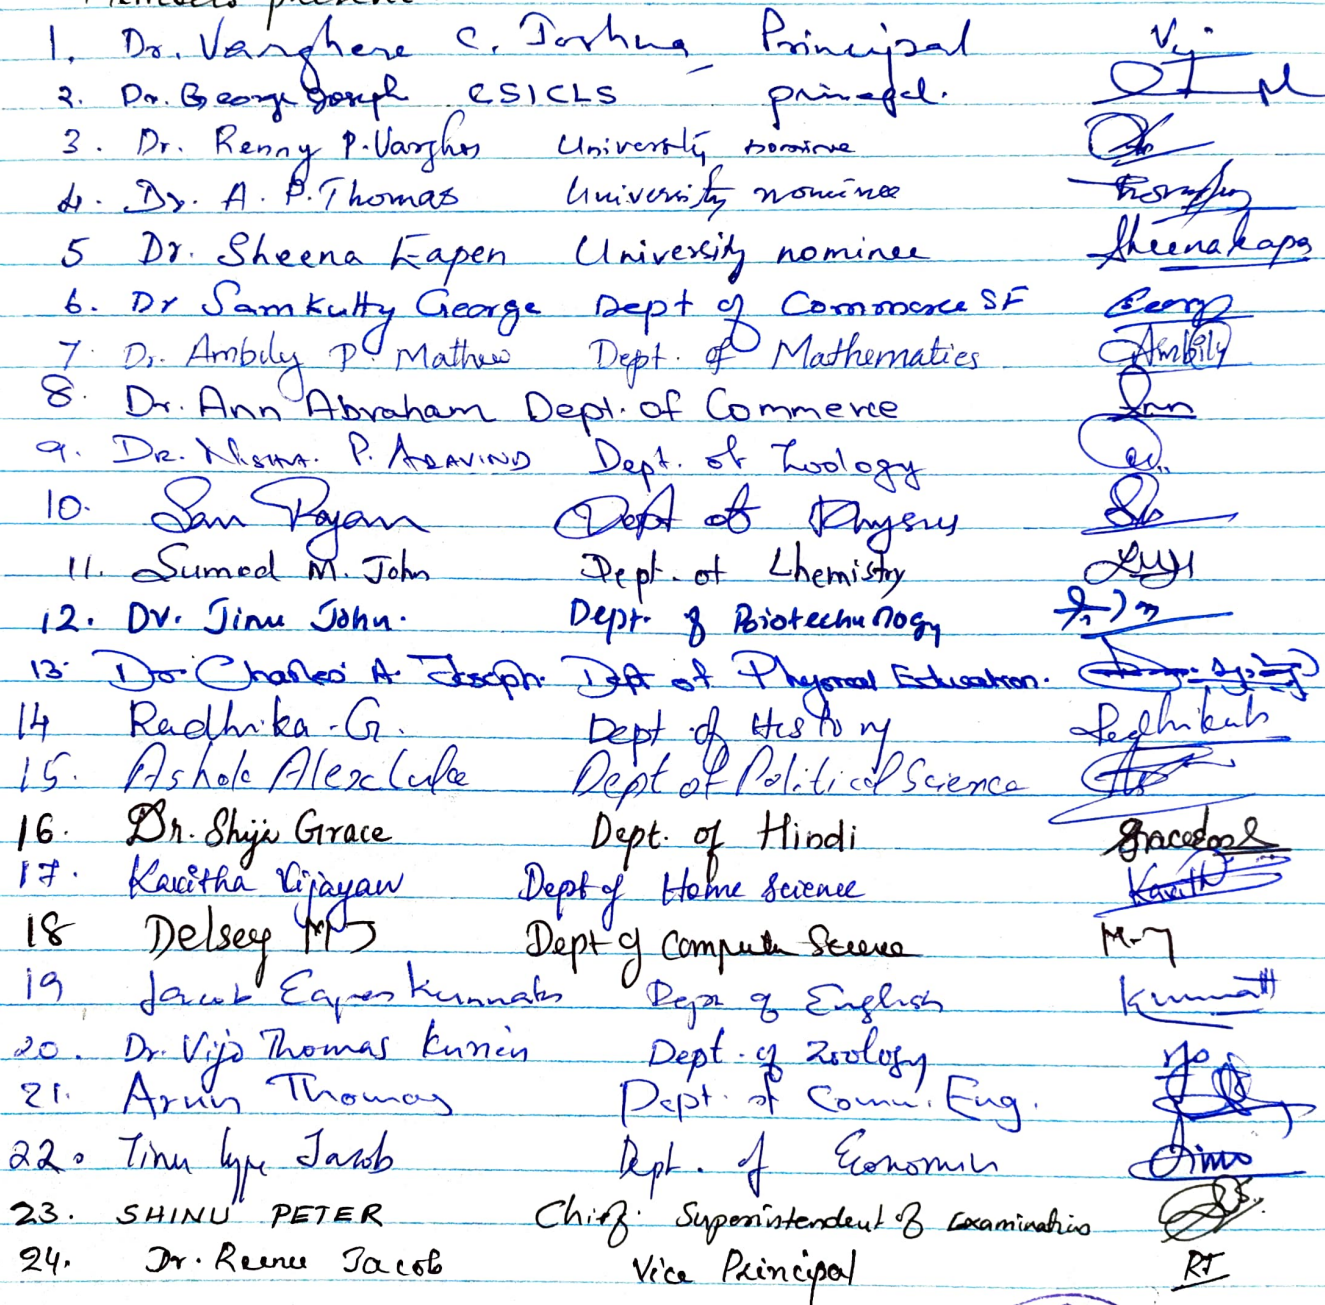 Members present
1. Dr. Varghese C. Joshua Principal
2. Dr. George Joseph CSICLS principal.
3. Dr. Renny P. Varghes University nominee
4. Dr. A. P. Thomas University nominee
5 Dr. Sheena Eapen University nominee Sheena Eapen
6. Dr Samkutty George Dept of Commerce SF George
7. Dr. Ambily P Mathew Dept. of Mathematics Ambily
8. Dr. Ann Abraham Dept. of Commerce Ann
9. DR. NISHA. P. ARAVIND Dept. of Zoology
10. San Rajan Dept of Physics
11. Sumod M. John Dept. of Chemistry
12. Dr. Jinu John. Dept. of Biotechnology
13. Dr Charles A. Joseph. Dept of Physical Education.
14 Radhika. G. Dept of History Radhika
15. Ashok Alex Luke Dept of Political Science
16. Dr. Shiji Grace Dept. of Hindi
17. Kavitha Vijayan Dept of Home Science Kavith
18 Delsey M J Dept of Computer Science M-J
19 Jacob Eapen Kunnath Dept of English Kunnath
20. Dr. Vijo Thomas Kurien Dept. of Zoology
21. Arun Thomas Dept. of Comm. Eng.
22. Tinu Iype Jacob Dept. of Economics
23. SHINU PETER Chief. Superintendent of Examinations
24. Dr. Reenee Jacob Vice Principal RJ